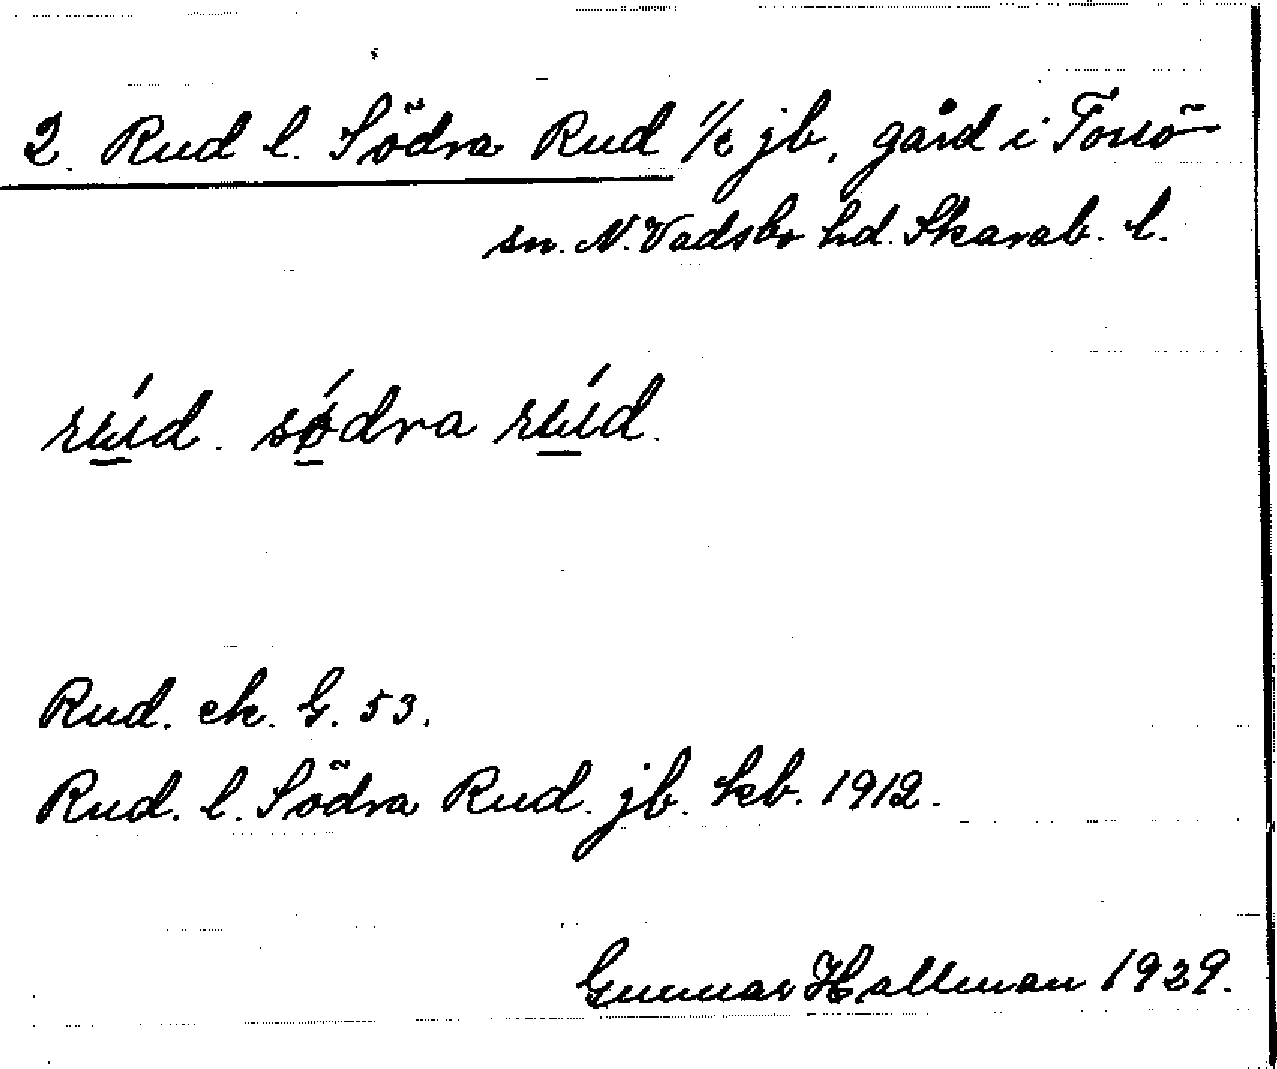 2. Rud l. Södra Rud 1/2 jb, gård i Torsö
sn. N. Vadsbo hd. Skarab. l.
rúd. sǿdra rúd.
Rud. ek. G. 53.
Rud. l. Södra Rud. jb. kb. 1912.
Gunnar Hallman 1929.